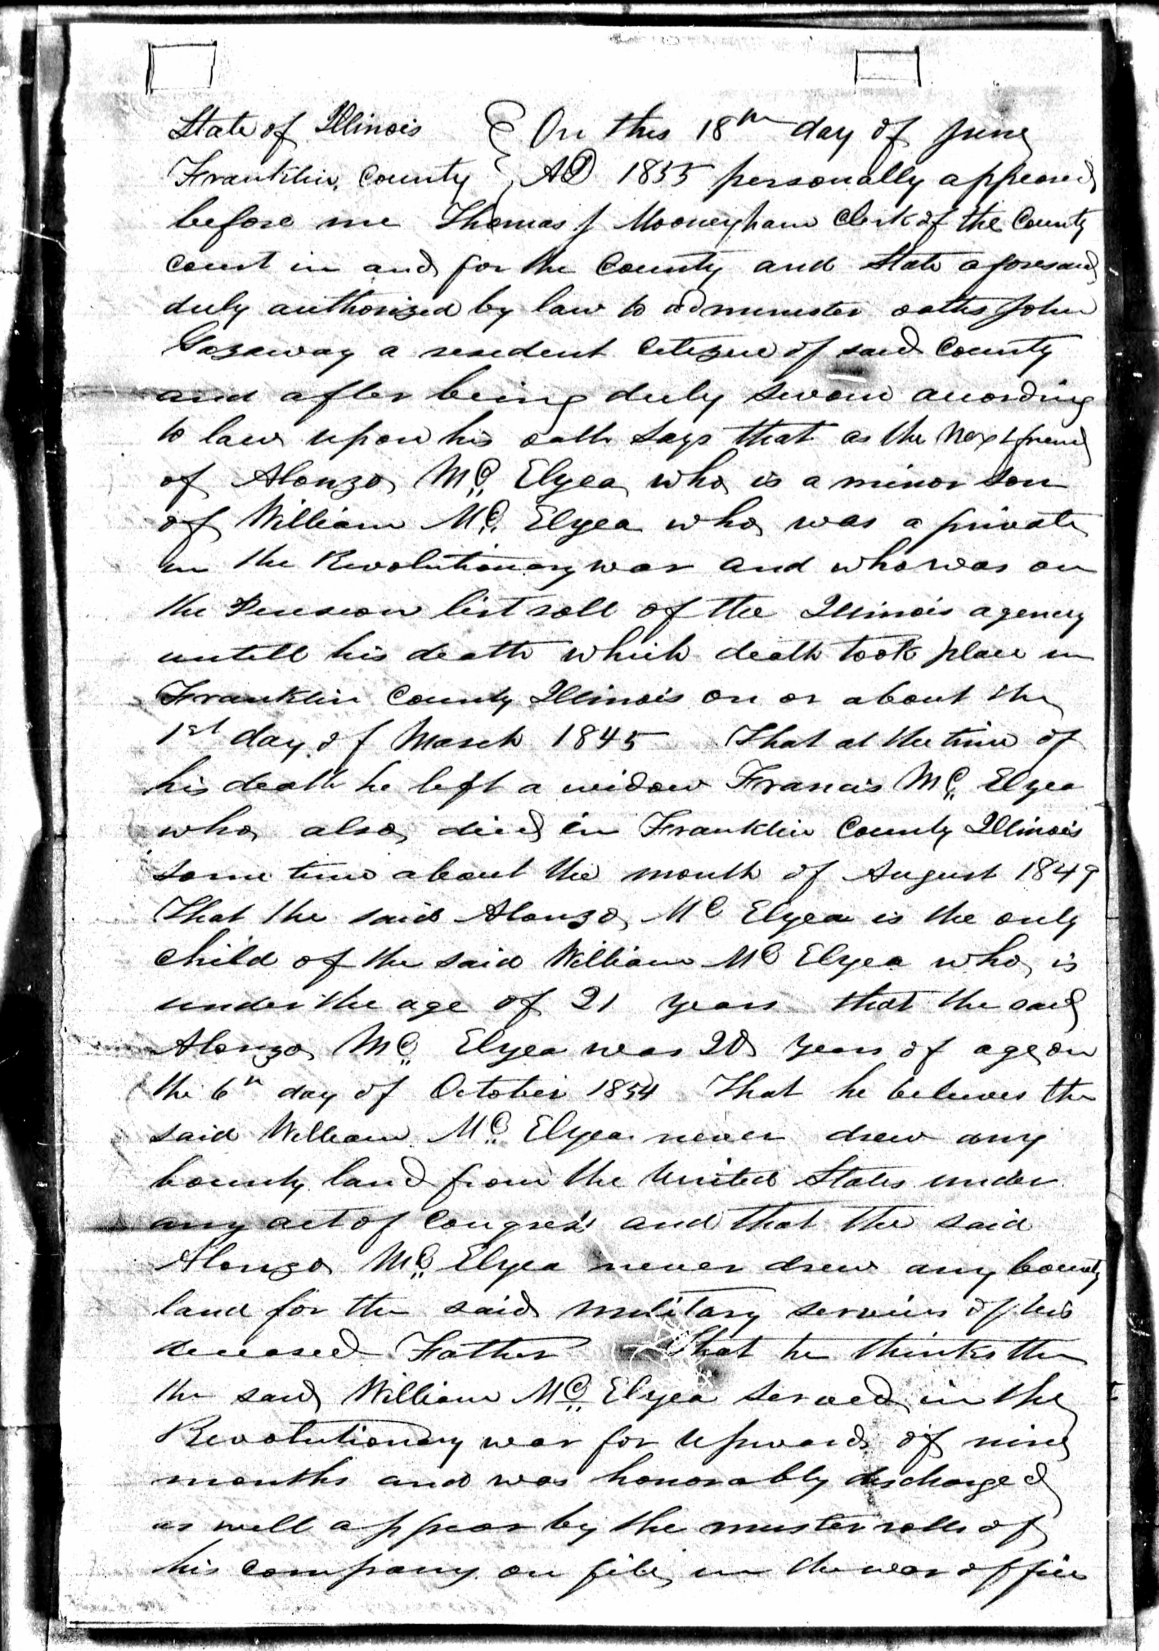 State of Illinois } On this 18th day of June
Franklin County } AD 1855 personally appeared
before me Thomas J Mooneyham Clerk of the County
court in and for the County and State aforesaid
duly authorized by law to administer oaths John
Gazaway a resedent Citizen of said County
and after being duly sworn acording
to law upon his oath says that as the next friend
of Alonzo Mc Elyea who is a minor son
of William Mc Elyea who was a private
in the Revolutionary war and who was on
the Pension list roll of the Illinois agency
untill his death which death took place in
Franklin County Illinois on or about the
1st day of March 1845 That at the time of
his death he left a widow Francis Mc Elyea
who also died in Franklin County Illinois
some time about the month of August 1849
That the said Alonzo Mc Elyea is the only
child of the said William Mc Elyea who is
under the age of 21 years that the said
Alonzo Mc Elyea was 20 years of age on
the 6th day of October 1854 That he believes the
said William Mc Elyea never drew any
bounty land from the United States under
any act of Congress and that the said
Alonzo Mc Elyea never drew any bounty
land for the said military services of his
deceased Father That he thinks the
the said William Mc Elyea served in the
Revolutionary war for upwards of nine
months and was honorably discharged
as will appear by the muster rolls of
his company on file in the war office